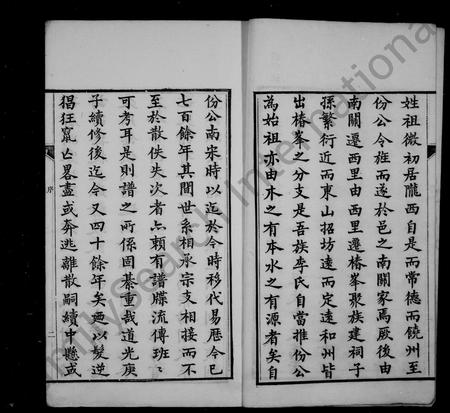 姓祖微初居隴西自是而常德而饒州至
份公令旌而遂於邑之南關家焉厥後由
南關遷西里由西里遷椿峯聚族建祠子
孫繁衍近而東山招坊遠而定遠和州皆
出椿峯之分支是吾族李氏自當推份公
為始祖亦由木之有本水之有源者矣自
份公南宋時以迄於今時移代易歷今已
七百餘年其間世系相承宗支相接而不
至於散佚失次者亦賴有譜牒流傳班班
可考耳是則譜之所係固綦重哉道光庚
子續修後迄今又四十餘年矣廼以髮逆
猖狂竄亡畧盡或奔逃離散嗣續中懸或
序
二
FamilySearch International